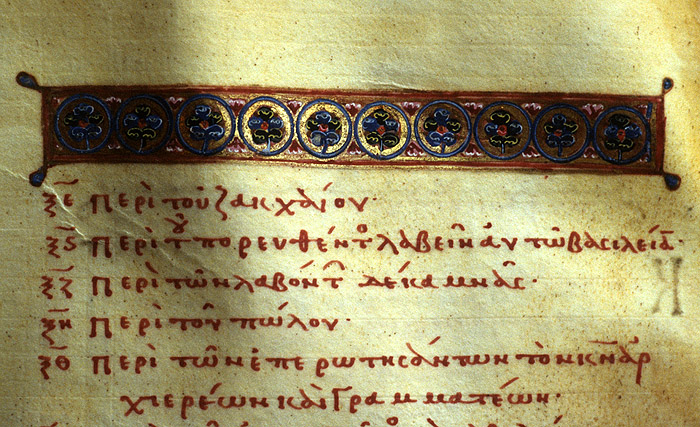 ξε Περὶ τοῦ ζακχαίου·
ξϛ Περὶ τοῦ πορευθέντο λαβεῖν ἑαυτῶ βασιλείαν·
ξζ Περὶ τῶν λαβόντ δέκα μνᾶς·
ξη Περὶ τοῦ πώλου·
ξθ Περὶ τῶν ἐπερωτησάντων τὸν κν ἀρ
χιερέων καὶ γραμματέων·